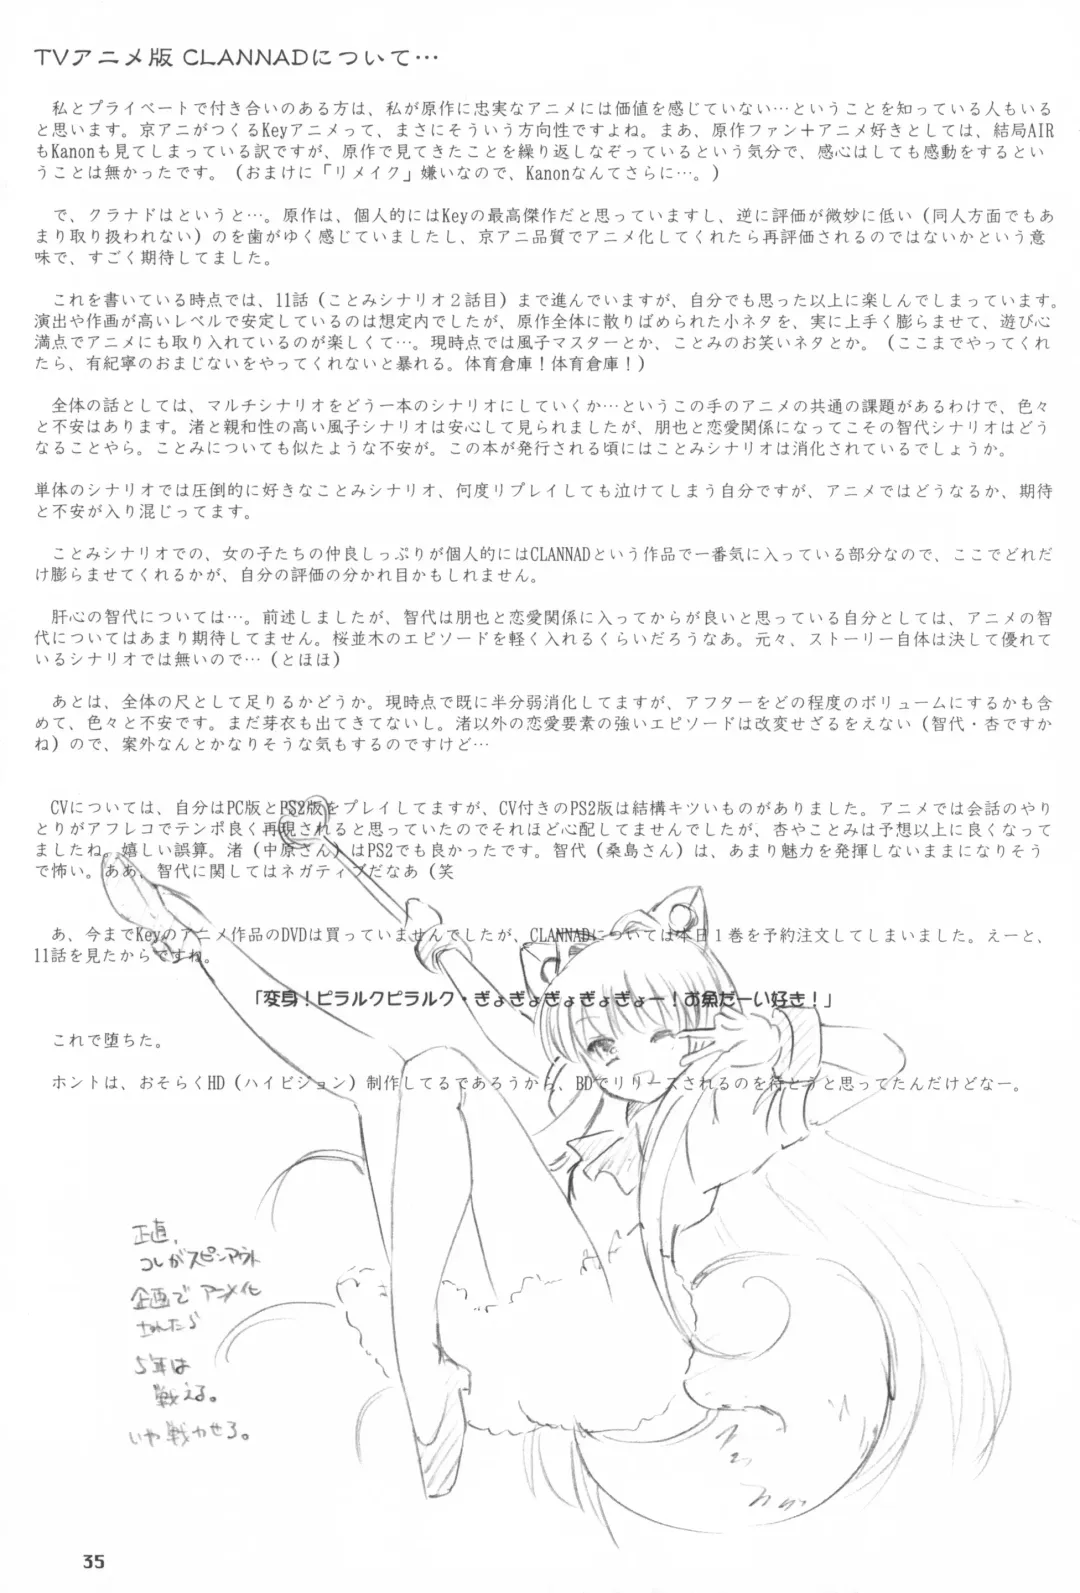 TVアニメ版 CLANNADについて…
私とプライベートで付き合いのある方は、私が原作に忠実なアニメには価値を感じていない…ということを知っている人もいる
と思います。京アニがつくるKeyアニメって、まさにそういう方向性ですよね。まあ、原作ファン＋アニメ好きとしては、結局AIR
もKanonも見てしまっている訳ですが、原作で見てきたことを繰り返しなぞっているという気分で、感心はしても感動をするとい
うことは無かったです。（おまけに「リメイク」嫌いなので、Kanonなんてさらに…。）
で、クラナドはというと…。原作は、個人的にはKeyの最高傑作だと思っていますし、逆に評価が微妙に低い（同人方面でもあ
まり取り扱われない）のを歯がゆく感じていましたし、京アニ品質でアニメ化してくれたら再評価されるのではないかという意
味で、すごく期待してました。
これを書いている時点では、11話（ことみシナリオ２話目）まで進んでいますが、自分でも思った以上に楽しんでしまっています。
演出や作画が高いレベルで安定しているのは想定内でしたが、原作全体に散りばめられた小ネタを、実に上手く膨らませて、遊び心
満点でアニメにも取り入れているのが楽しくて…。現時点では風子マスターとか、ことみのお笑いネタとか。（ここまでやってくれ
たら、有紀寧のおまじないをやってくれないと暴れる。体育倉庫！体育倉庫！）
全体の話としては、マルチシナリオをどう一本のシナリオにしていくか…というこの手のアニメの共通の課題があるわけで、色々
と不安はあります。渚と親和性の高い風子シナリオは安心して見られましたが、朋也と恋愛関係になってこその智代シナリオはどう
なることやら。ことみについても似たような不安が。この本が発行される頃にはことみシナリオは消化されているでしょうか。
単体のシナリオでは圧倒的に好きなことみシナリオ、何度リプレイしても泣けてしまう自分ですが、アニメではどうなるか、期待
と不安が入り混じってます。
ことみシナリオでの、女の子たちの仲良しっぷりが個人的にはCLANNADという作品で一番気に入っている部分なので、ここでどれだ
け膨らませてくれるかが、自分の評価の分かれ目かもしれません。
肝心の智代については…。前述しましたが、智代は朋也と恋愛関係に入ってからが良いと思っている自分としては、アニメの智
代についてはあまり期待してません。桜並木のエピソードを軽く入れるくらいだろうなあ。元々、ストーリー自体は決して優れて
いるシナリオでは無いので…（とほほ）
あとは、全体の尺として足りるかどうか。現時点で既に半分弱消化してますが、アフターをどの程度のボリュームにするかも含
めて、色々と不安です。まだ芽衣も出てきてないし。渚以外の恋愛要素の強いエピソードは改変せざるをえない（智代・杏ですか
ね）ので、案外なんとかなりそうな気もするのですけど…
CVについては、自分はPC版とPS2版をプレイしてますが、CV付きのPS2版は結構キツいものがありました。アニメでは会話のやり
とりがアフレコでテンポ良く再現されると思っていたのでそれほど心配してませんでしたが、杏やことみは予想以上に良くなって
ましたね。嬉しい誤算。渚（中原さん）はPS2でも良かったです。智代（桑島さん）は、あまり魅力を発揮しないままになりそう
で怖い。ああ、智代に関してはネガティブだなあ（笑
あ、今までKeyのアニメ作品のDVDは買っていませんでしたが、CLANNADについては本日１巻を予約注文してしまいました。えーと、
11話を見たからですね。
「変身！ピラルクピラルク・ぎょぎょぎょぎょぎょー！お魚だーい好き！」
これで堕ちた。
ホントは、おそらくHD（ハイビジョン）制作してるであろうから、BDでリリースされるのを待とうと思ってたんだけどなー。
正直、
コレがスピンアウト
企画でアニメ化
されたら
5年は
戦える。
いや戦わせろ。
35